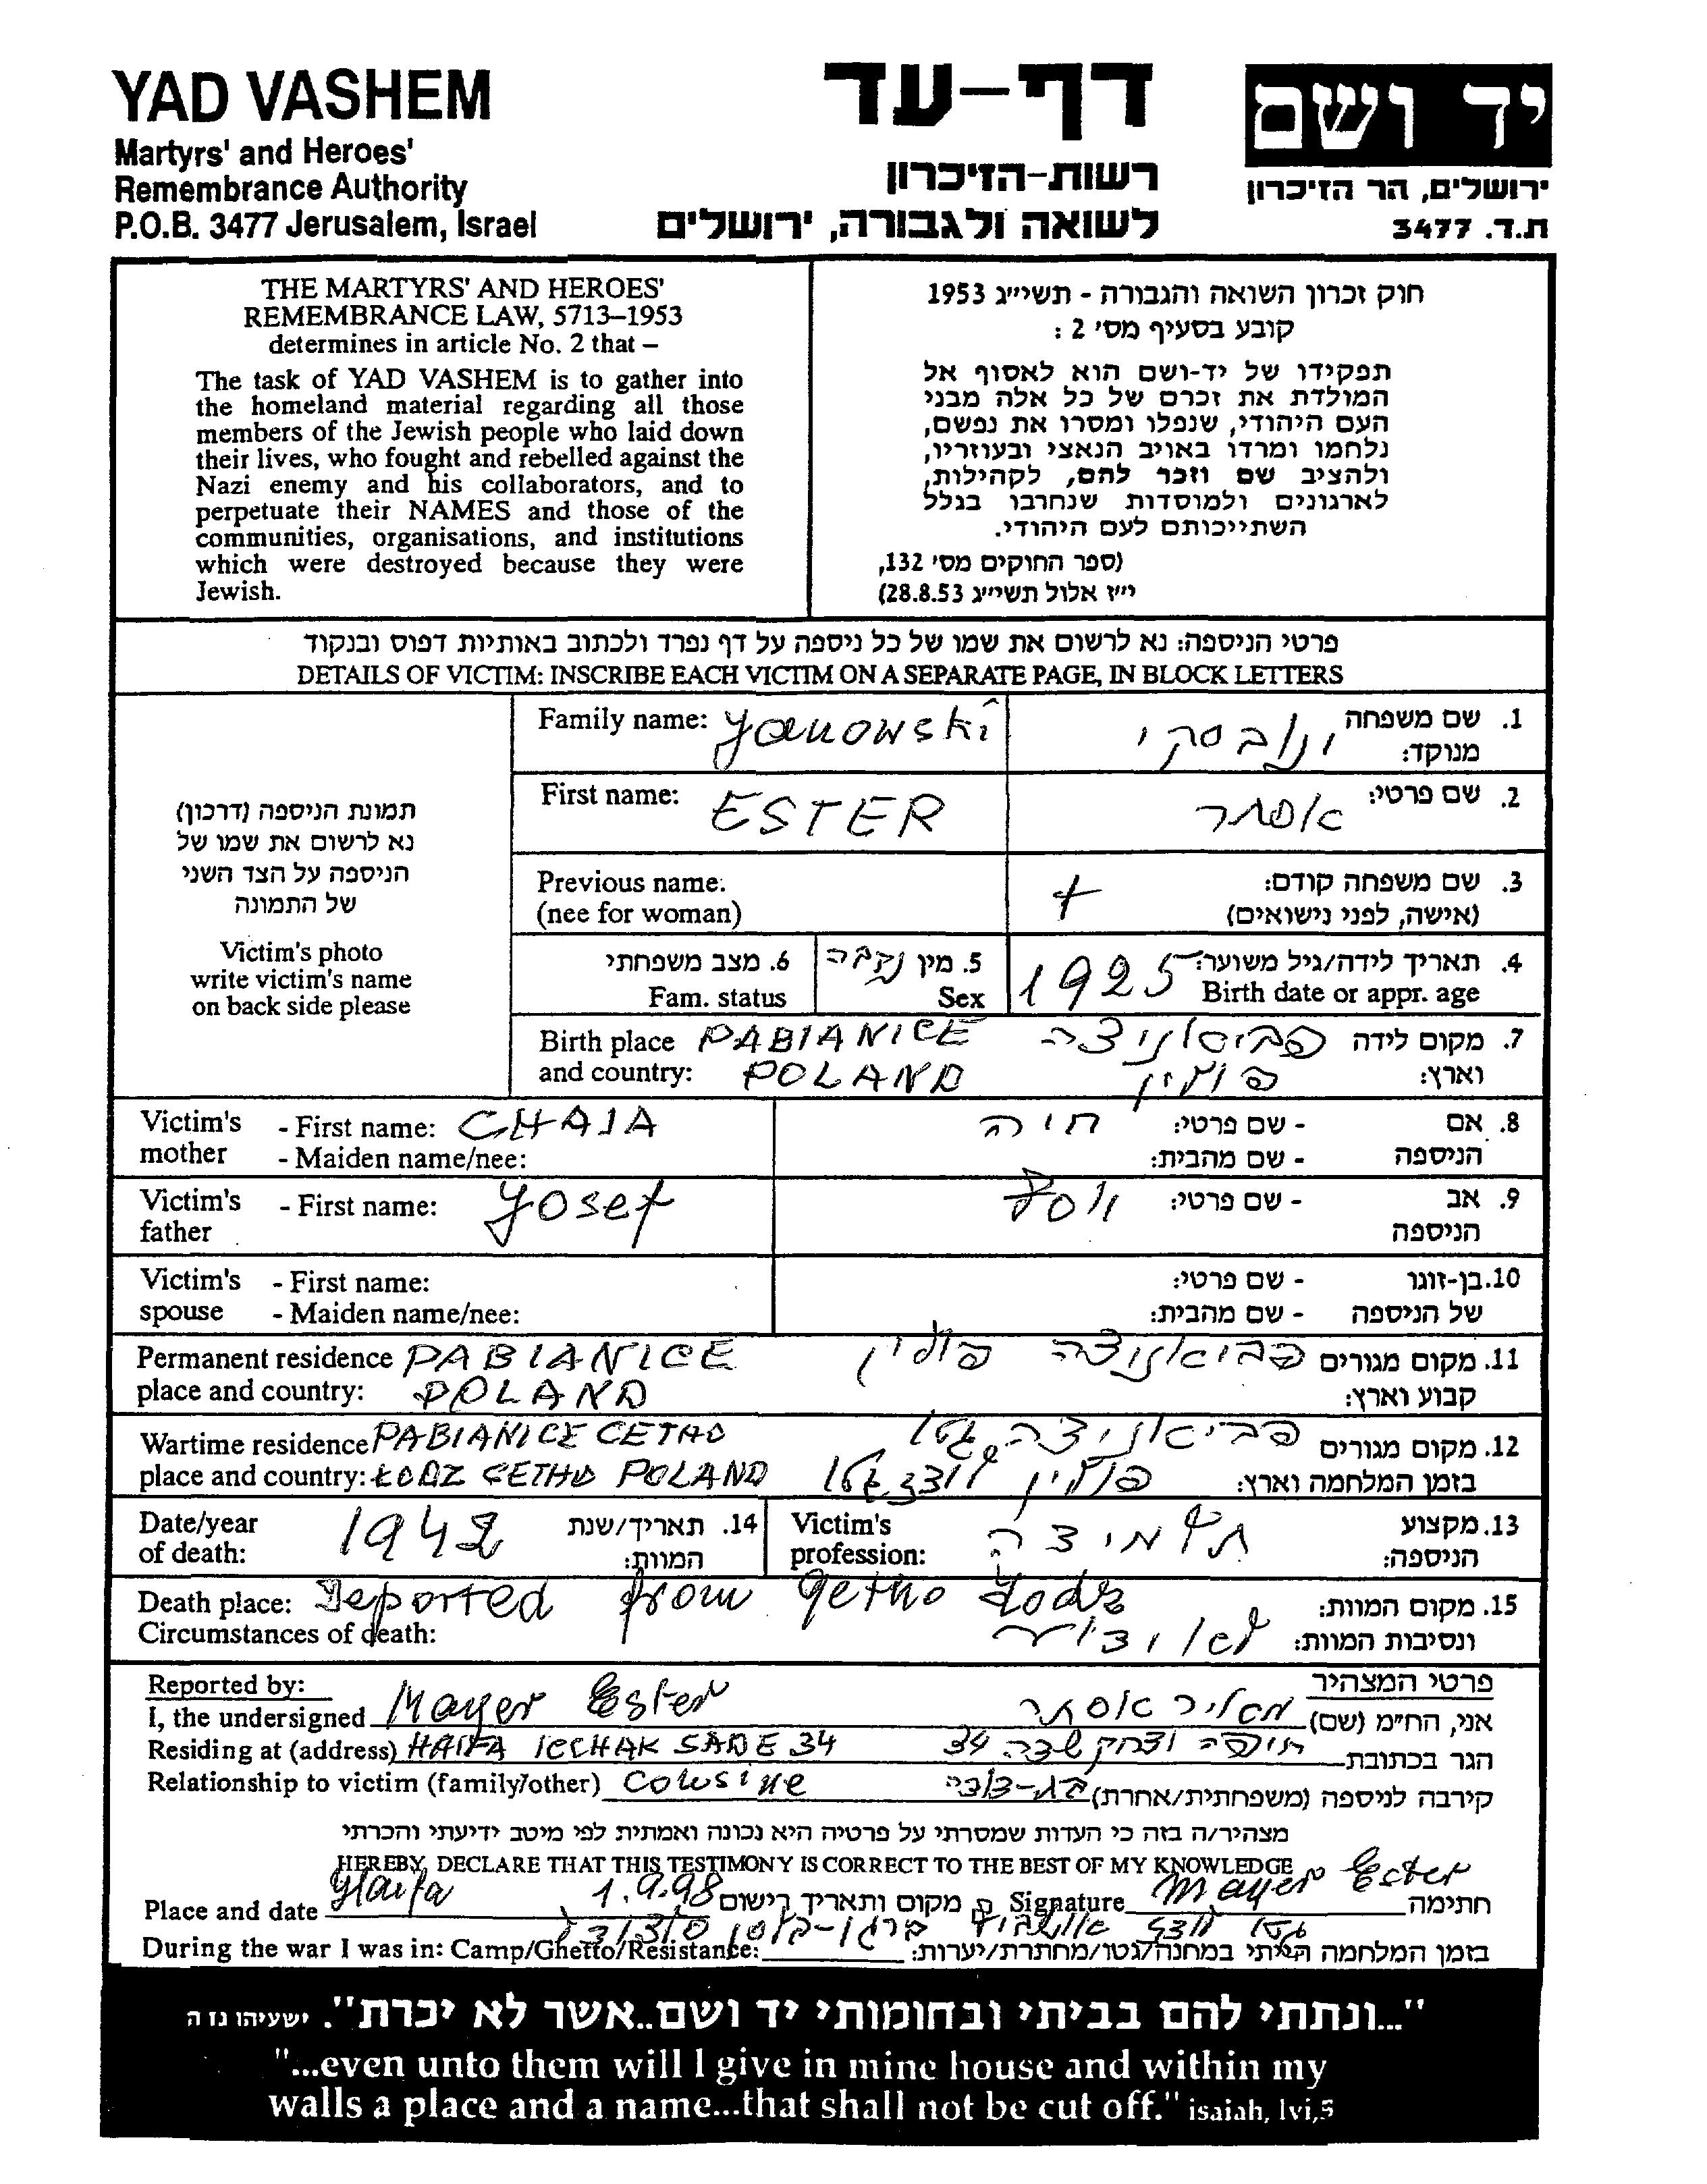 YAD VASHEM
Martyrs' and Heroes'
Remembrance Authority
P.O.B. 3477 Jerusalem, Israel
דף-עד
רשות-הזיכרון
לשואה ולגבורה, ירושלים
יד ושם
ירושלים, הר הזיכרון
ת.ד. 3477
THE MARTYRS' AND HEROES'
REMEMBRANCE LAW, 5713–1953
determines in article No. 2 that –
The task of YAD VASHEM is to gather into
the homeland material regarding all those
members of the Jewish people who laid down
their lives, who fought and rebelled against the
Nazi enemy and his collaborators, and to
perpetuate their NAMES and those of the
communities, organisations, and institutions
which were destroyed because they were
Jewish.
חוק זכרון השואה והגבורה - תשי״ג 1953
קובע בסעיף מס׳ 2 :
תפקידו של יד-ושם הוא לאסוף אל
המולדת את זכרם של כל אלה מבני
העם היהודי, שנפלו ומסרו את נפשם,
נלחמו ומרדו באויב הנאצי ובעוזריו,
ולהציב שם וזכר להם, לקהילות,
לארגונים ולמוסדות שנחרבו בגלל
השתייכותם לעם היהודי.
(ספר החוקים מס׳ 132,
י״ז אלול תשי״ג 28.8.53)
פרטי הניספה: נא לרשום את שמו של כל ניספה על דף נפרד ולכתוב באותיות דפוס ובנקוד
DETAILS OF VICTIM: INSCRIBE EACH VICTIM ON A SEPARATE PAGE, IN BLOCK LETTERS
תמונת הניספה (דרכון)
נא לרשום את שמו של
הניספה על הצד השני
של התמונה
Victim's photo
write victim's name
on back side please
Family name: Yanowski
1. שם משפחה מנוקד: ינובסקי
First name: ESTER
2. שם פרטי: אסתר
Previous name:
(nee for woman)
3. שם משפחה קודם: +
(אישה, לפני נישואים)
4. תאריך לידה/גיל משוער: 1925
Birth date or appr. age
5. מין נקבה
Sex
6. מצב משפחתי
Fam. status
Birth place PABIANICE
and country: POLAND
7. מקום לידה פביאניצה
וארץ: פולין
Victim's mother - First name: CHAJA
- Maiden name/nee:
8. אם הניספה - שם פרטי: חיה
- שם מהבית:
Victim's father - First name: Yosef
9. אב הניספה - שם פרטי: יוסף
Victim's spouse - First name:
- Maiden name/nee:
10. בן-זוגו של הניספה - שם פרטי:
- שם מהבית:
Permanent residence PABIANICE
place and country: POLAND
11. מקום מגורים פביאניצה פולין
קבוע וארץ:
Wartime residence PABIANICE GETHO
place and country: ŁODZ GETHO POLAND
12. מקום מגורים פביאניצה גטו
בזמן המלחמה וארץ: פולין לודז גטו
Date/year
of death: 1942
14. תאריך/שנת
המוות:
Victim's
profession:
13. מקצוע
הניספה: תלמידה
Death place: Deported from getho Łodz
Circumstances of death:
15. מקום המוות:
ונסיבות המוות:
Reported by:
I, the undersigned Mayer Ester
Residing at (address) HAIFA ICCHAK SADE 34
Relationship to victim (family/other) Cousine
פרטי המצהיר
אני, הח״מ (שם) מאיר אסתר
הגר בכתובת חיפה יצחק שדה 34
קירבה לניספה (משפחתית/אחרת) בת-דודה
מצהיר/ה בזה כי העדות שמסרתי על פרטיה היא נכונה ואמתית לפי מיטב ידיעתי והכרתי
HEREBY, DECLARE THAT THIS TESTIMONY IS CORRECT TO THE BEST OF MY KNOWLEDGE
Place and date Haifa 1.9.98 מקום ותאריך רישום
Signature Mayer Ester חתימה
During the war I was in: Camp/Ghetto/Resistance:
בזמן המלחמה הייתי במחנה/גטו/מחתרת/יערות: גטו לודז אושוויץ ברגן-בלזן
"...ונתתי להם בביתי ובחומותי יד ושם..אשר לא יכרת". ישעיהו נו ה
"...even unto them will I give in mine house and within my
walls a place and a name...that shall not be cut off." isaiah, lvi,5